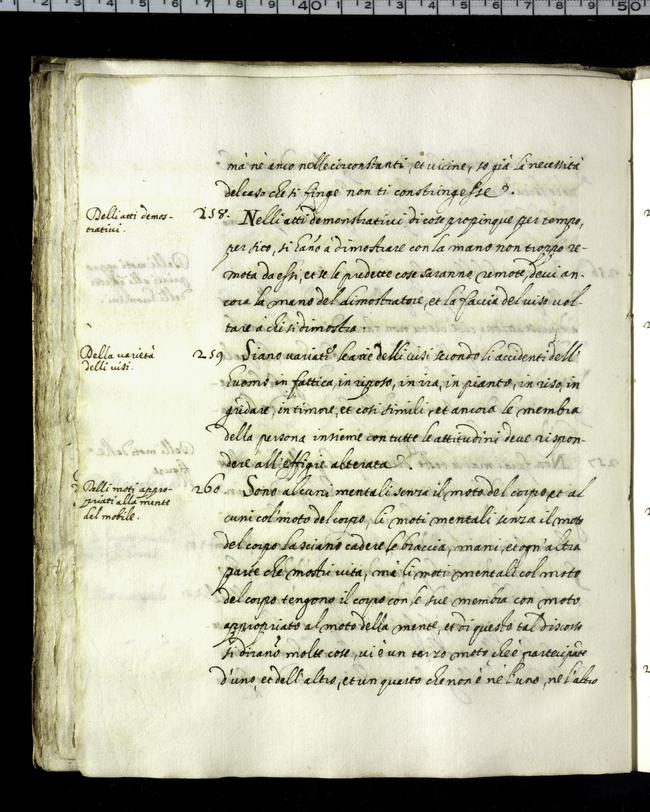 mà nè anco nelle circonstanti, et vicine, se già la necessità
del caso che si finge non ti constringesse.
Delli atti demos-
trativi.
258. Nelli atti demonstrativi di cose propinque per tempo,
per sito, si hano à dimostrare con la mano non troppo re-
mota da essi, et se le predette cose saranno remote, devi an-
cora la mano del dimostratore, et la faccia del viso vol-
tare à chi si dimostra.
Della varietà
delli visi.
259 Siano variati le arie delli visi secondo li accidenti dell'
huomo in fattica, in riposo, in ira, in pianto, in riso, in
gridare, in timore, et cosi simili, et ancora le membra
della persona insieme con tutte le attitudini deve rispon-
dere all'effigie alterata.
Delli moti appro-
priati alla mente
del mobile.
260 Sono alcuni mentali senza il moto del corpo, et al
cuni col moto del corpo, li moti mentali senza il moto
del corpo lasciano cadere le braccia, mani, et ogn'altra
parte che mostri vita, mà li moti mentali col moto
del corpo tengono il corpo con le sue membra con moto
appropriato al moto della mente, et di questo tal discorso
si dirano molte cose, vi è un terzo moto che è partecipate
d'uno, et dell'altro, et un quarto che non è nè l'uno, nè l'altro